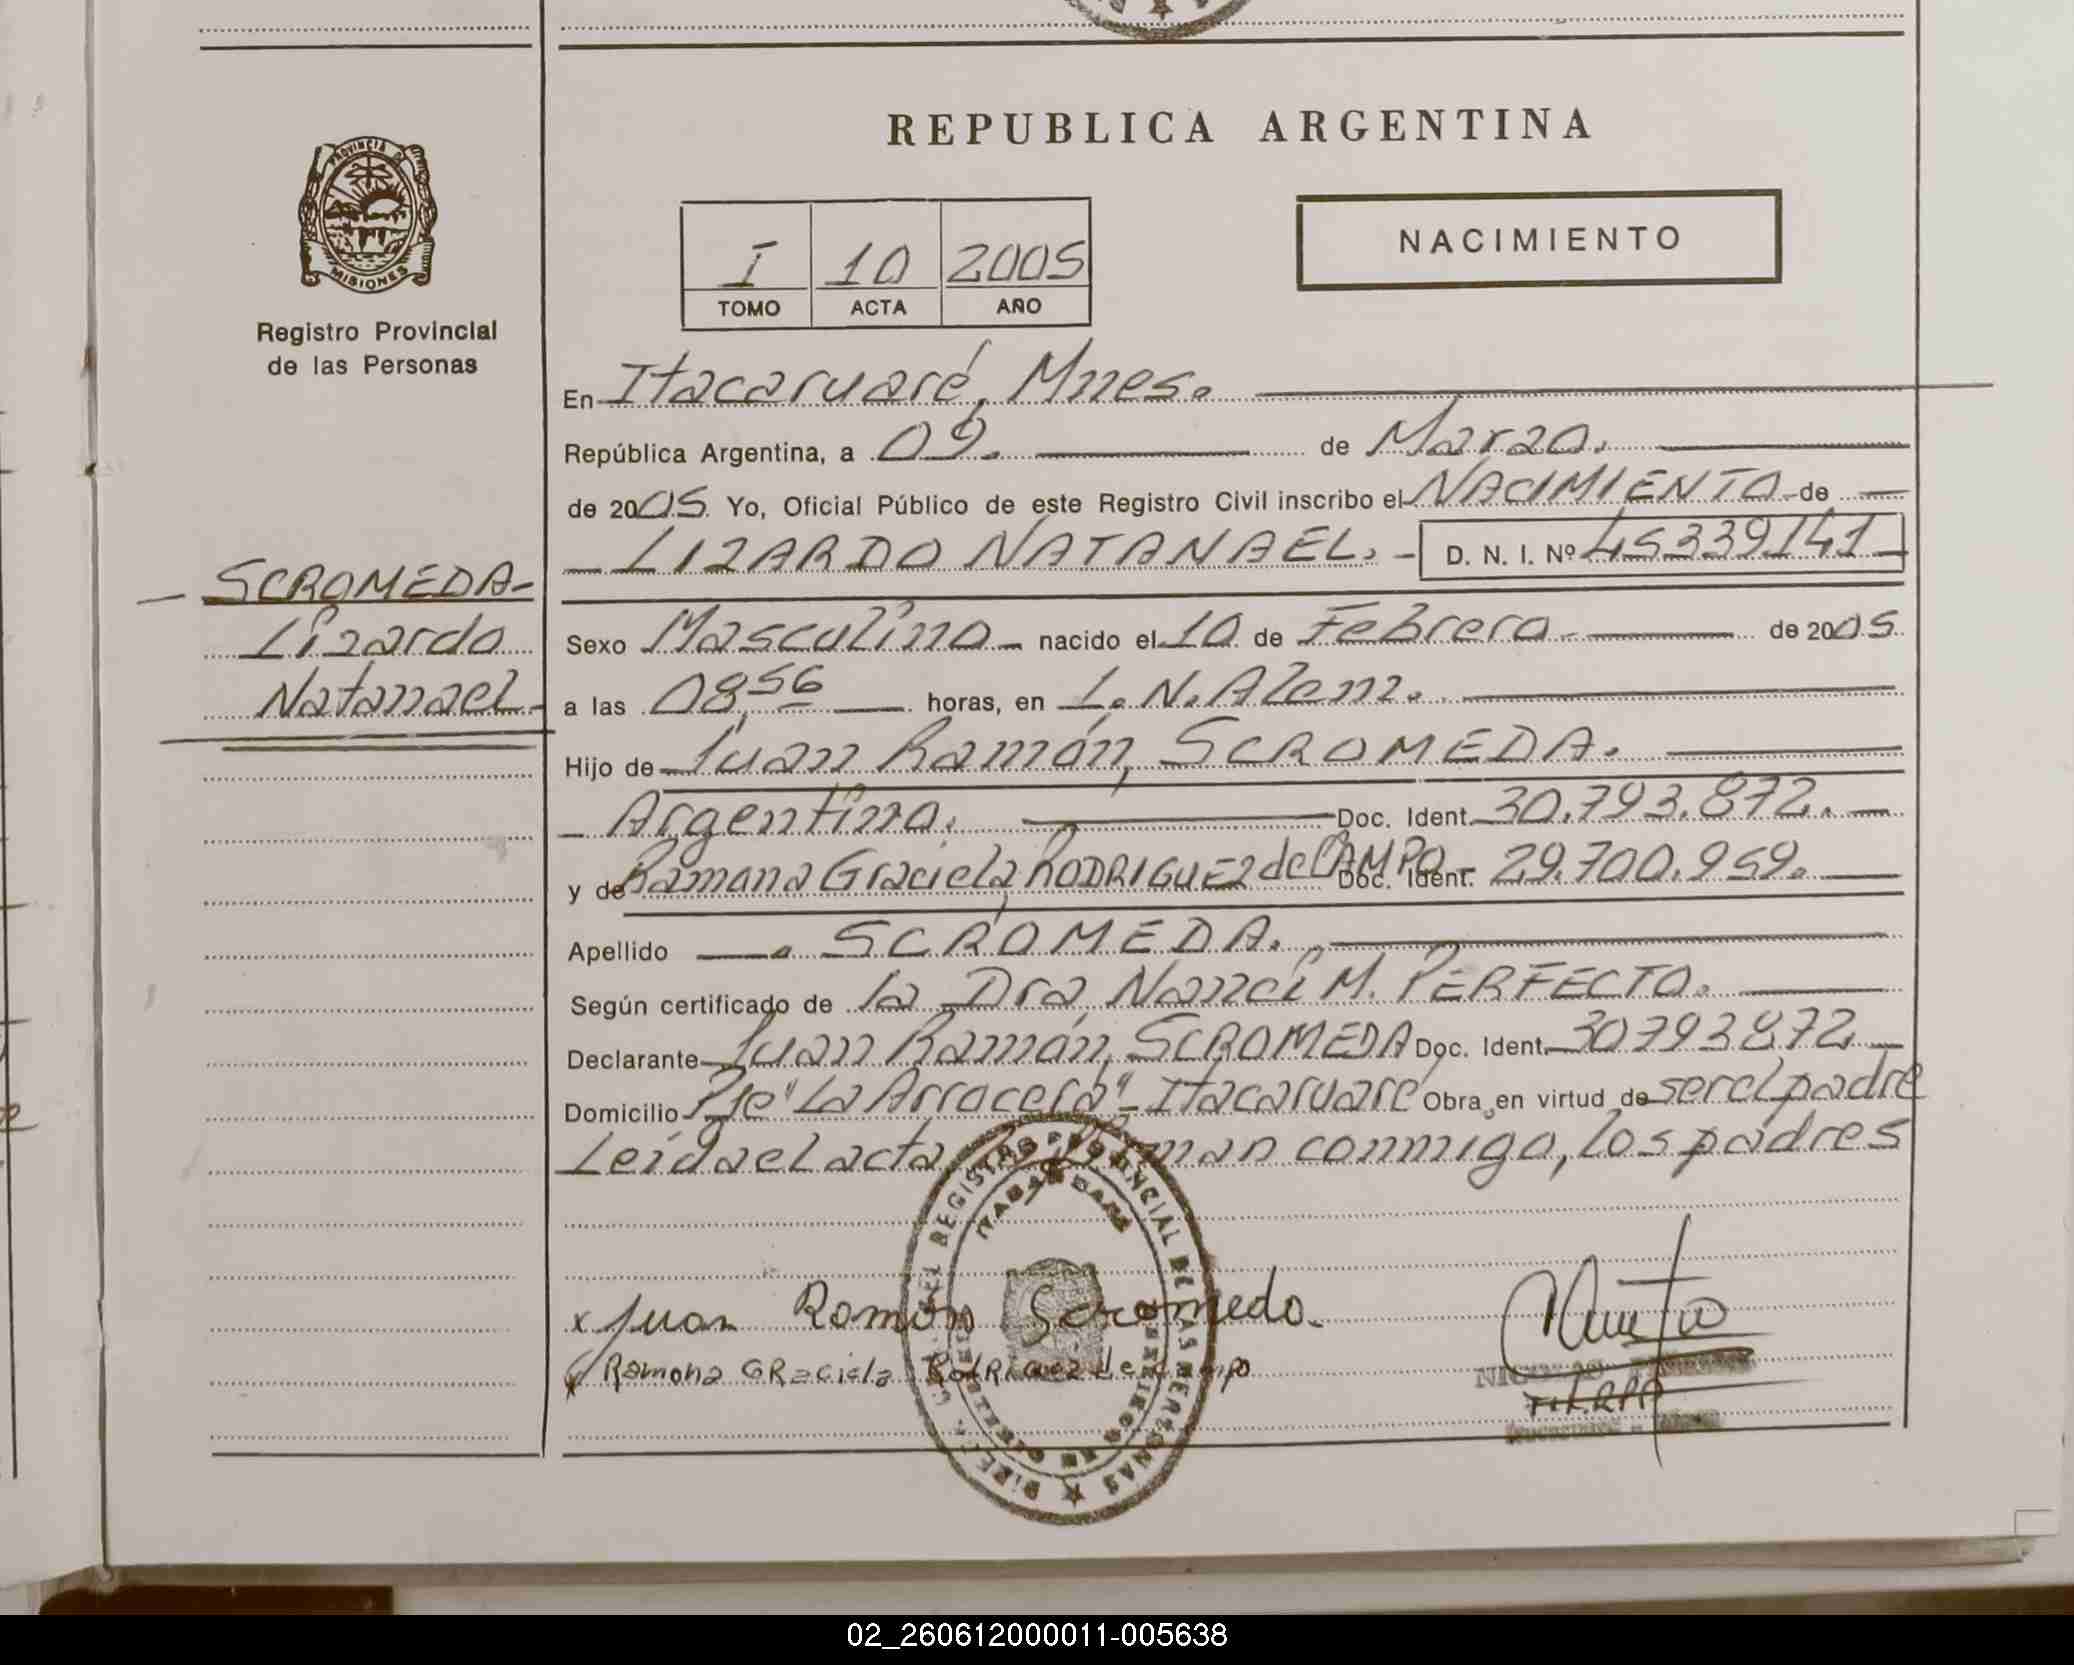 REPUBLICA ARGENTINA
NACIMIENTO
I 10 2005
TOMO ACTA AÑO
PROVINCIA D
MISIONES
Registro Provincial
de las Personas
En Itacaruaré, Mnes.
República Argentina, a 09. de Marzo.
de 2005. Yo, Oficial Público de este Registro Civil inscribo el NACIMIENTO de
LIZARDO NATANAEL. D. N. I. Nº 45339141
SCROMEDA
Lizardo
Natanael
Sexo Masculino nacido el 10 de Febrero de 2005
a las 08,56 horas, en L. N. Alem.
Hijo de Juan Ramón, SCROMEDA.
Argentino. Doc. Ident. 30.793.872.
y de Ramona Graciela, RODRIGUEZ de CAMPO Doc. Ident. 29.700.959.
Apellido SCROMEDA.
Según certificado de la Dra Nanci M. PERFECTO.
Declarante Juan Ramón, SCROMEDA Doc. Ident. 30793872
Domicilio Pje "La Arrocera" - Itacaruaré Obra en virtud de ser el padre
Leída el acta conmigo, los padres
x Juan Ramón Scromeda.
Ramona GRaciela RodRiguez de campo
02_260612000011-005638